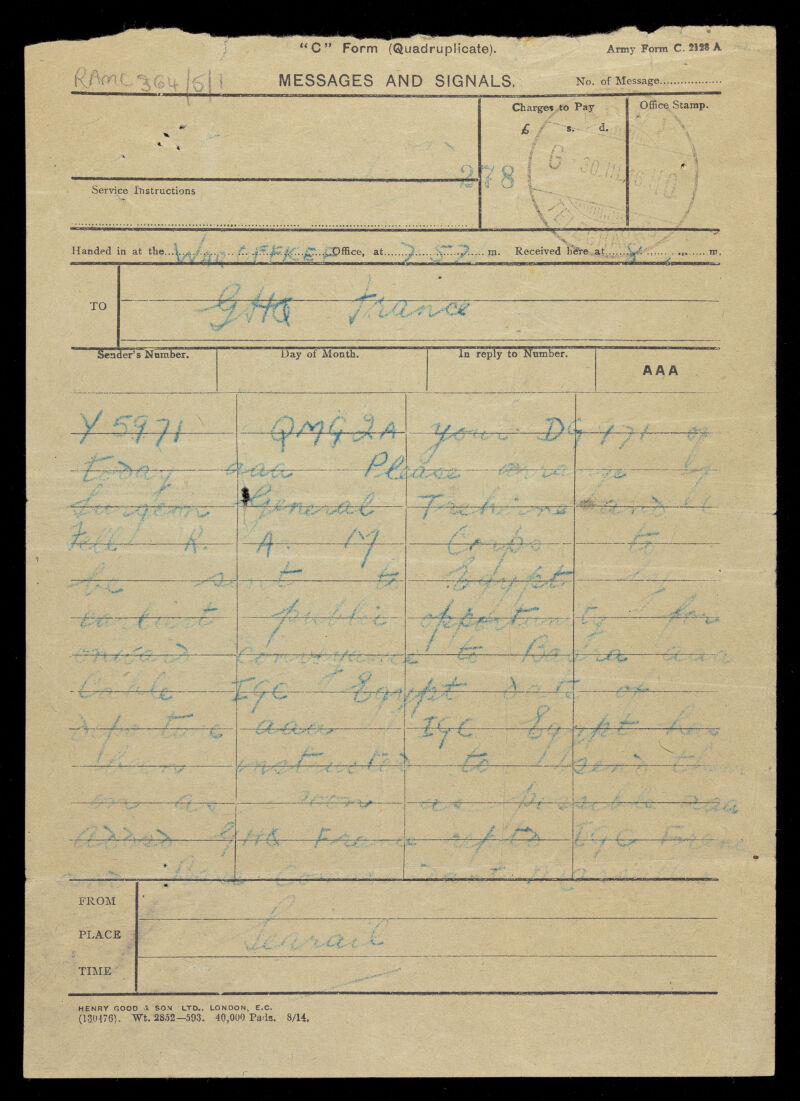 "C" Form (Quadruplicate). Army Form C. 2128 A
RAMC 364/5/1 MESSAGES AND SIGNALS. No. of Message
Charges to Pay Office Stamp.
£ s. d.
278
G 30.III.16 HQ
Service Instructions
Handed in at the War Office, at 7 57 m. Received here at 8 m.
TO GHQ France
Sender's Number. Day of Month. In reply to Number. AAA
Y 5971 QMG2A your DG 171 of
today aaa Please arrange
Surgeon General and
Fell R. A. M Corps to
be sent to Egypt by
earliest public opportunity for
onward conveyance to Basra aaa
Cable IGC Egypt date of
departure aaa IGC Egypt has
been instructed to send them
on as soon as possible aaa
added GHQ France reptd IGC
and Base Commandant
FROM
PLACE Searail
TIME
HENRY GOOD & SON LTD., LONDON, E.C.
(130476). Wt. 2852—593. 40,000 Pads. 8/14.